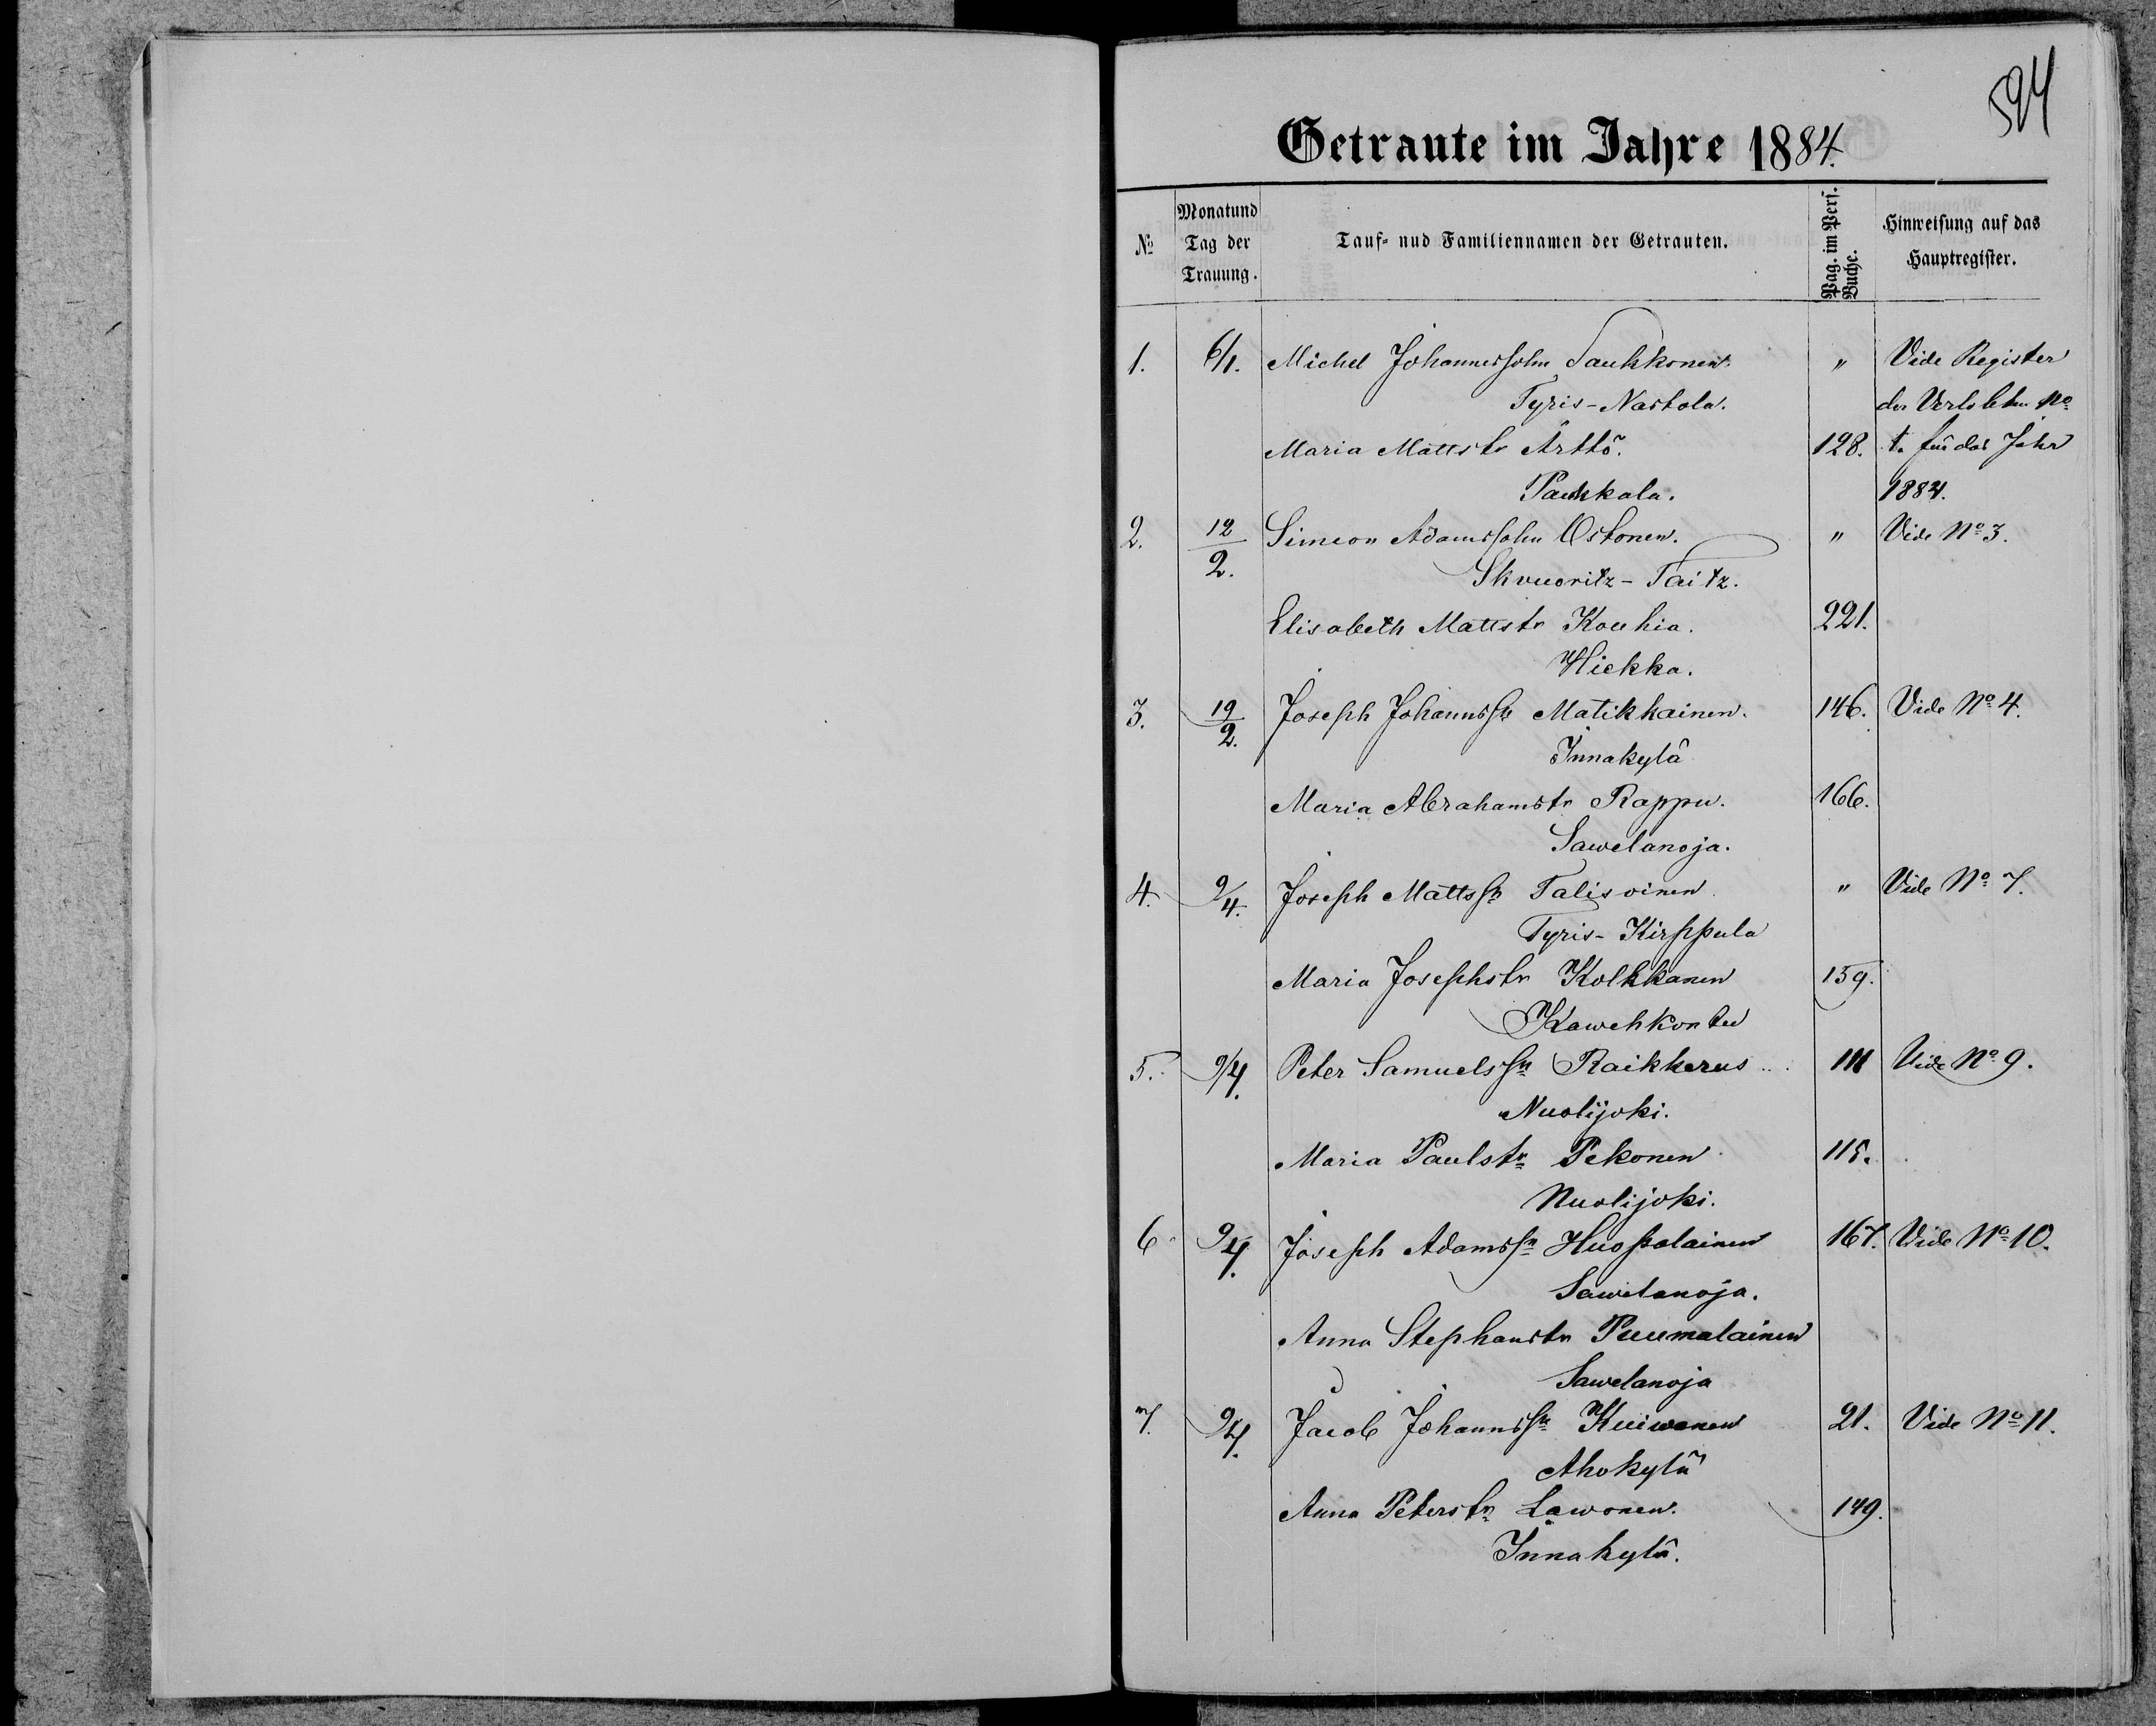 594
Getraute im Jahre 1884.
№ Monat und Tag der Trauung. Tauf- nud Familiennamen der Getrauten. Pag. im Pers. Buche. Hinweisung auf das Hauptregister.
1. 6/1. Michel Johannessohn Saukkonen. " Vide Register
Tyris-Nastola. der Verlobten No
Maria Mattstr Ärttö. 128. 1. für das Jahr
Paukkala. 1884.
2. 12/2. Simeon Adamssohn Ostonen. " Vide No 3.
Skvuoritz-Taitz.
Elisabeth Mattstr Kouhia. 221.
Hiekka.
3. 19/2. Joseph Johannssn Matikkainen. 146. Vide No 4.
Innakylä
Maria Abrahamstr Rappu. 166.
Sawelanoja.
4. 9/4. Joseph Mattssn Talisoinen " Vide No 7.
Tyris-Kirppula
Maria Josephstr Kolkkanen 159.
Kawehkontu
5. 9/4. Peter Samuelssn Raikkerus 111 Vide No 9.
Nuolijoki.
Maria Paulstr Pekonen 115.
Nuolijoki.
6 9/4. Joseph Adamssn Huopalainen 167. Vide No 10.
Sawelanoja.
Anna Stephanstr Puumalainen
Sawelanoja
7. 9/4. Jacob Johannssn Kuiwanen 21. Vide No 11.
Ahokylä
Anna Peterstr Lawonen. 149.
Innakylä.